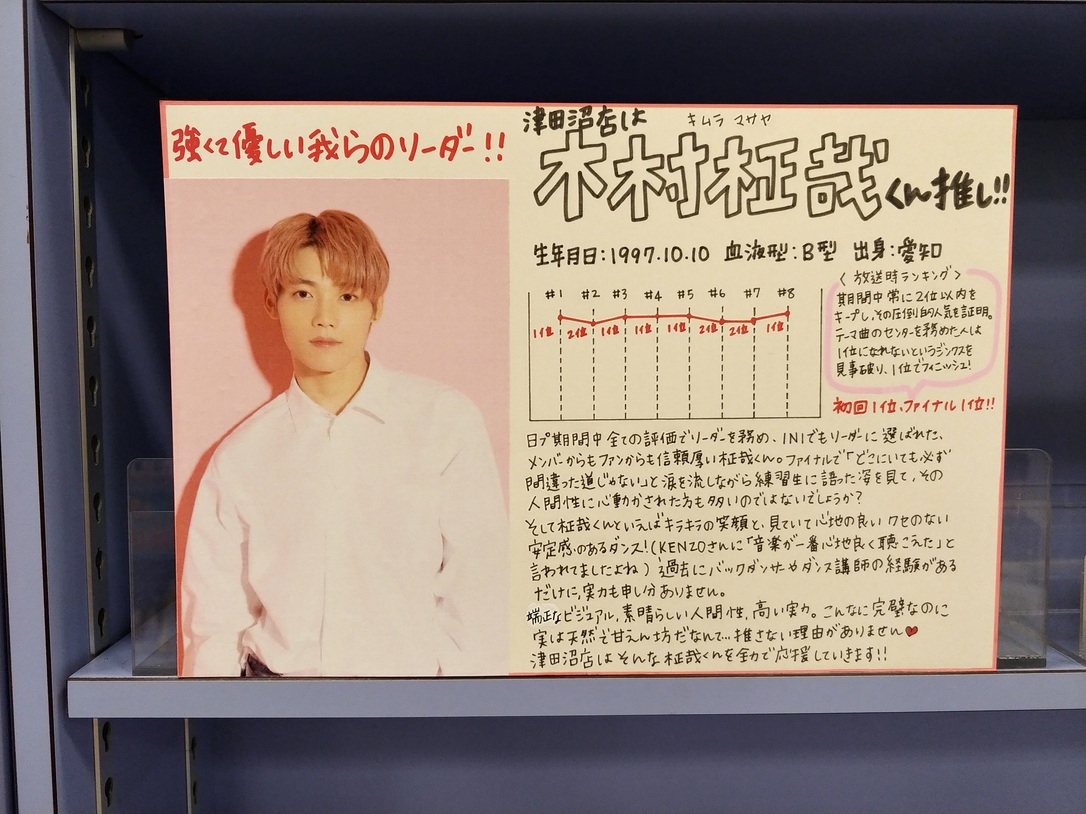 強くて優しい我らのリーダー!!
津田沼店は
キムラ マサヤ
木村柾哉くん推し!!
生年月日:1997.10.10 血液型:B型 出身:愛知
<放送時ランキング>
#1 #2 #3 #4 #5 #6 #7 #8
1位 2位 1位 1位 1位 2位 2位 1位
期間中常に2位以内を
キープし、その圧倒的人気を証明。
テーマ曲のセンターを務めた人は
1位になれないというジンクスを
見事破り、1位でフィニッシュ!
初回1位、ファイナル1位!!
日プ期間中全ての評価でリーダーを務め、INIでもリーダーに選ばれた、
メンバーからもファンからも信頼厚い柾哉くん。ファイナルで「どこにいても必ず
間違った道じゃない」と涙を流しながら練習生に語った姿を見て、その
人間性に心動かされた方も多いのではないでしょうか?
そして柾哉くんといえばキラキラの笑顔と、見ていて心地の良いクセのない
安定感のあるダンス!(KENZOさんに「音楽が一番心地良く聴こえた」と
言われてましたよね)過去にバックダンサーやダンス講師の経験がある
だけに、実力も申し分ありません。
端正なビジュアル、素晴らしい人間性、高い実力。こんなに完璧なのに
実は天然で甘えん坊だなんて…推さない理由がありません♥
津田沼店はそんな柾哉くんを全力で応援していきます!!